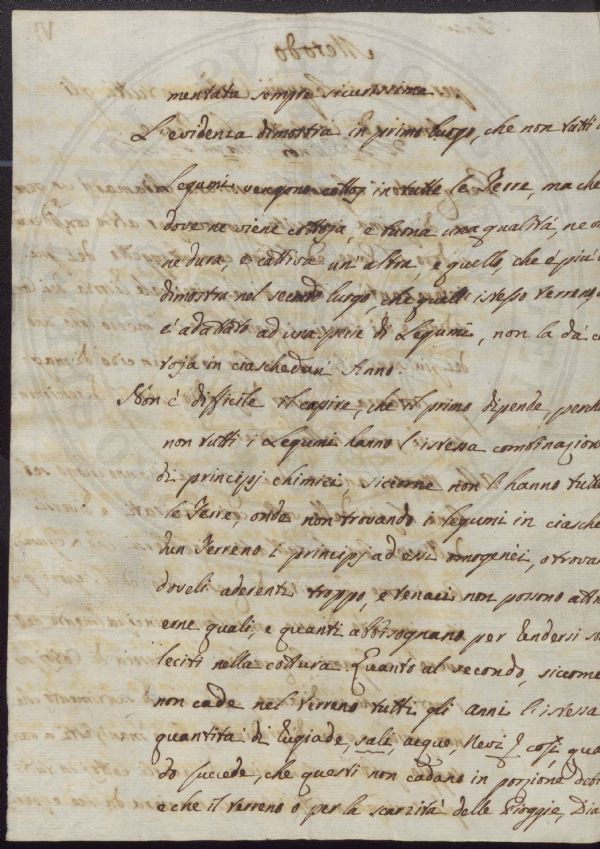 mentata sempre sicurissima
L'evidenza dimostra in primo luogo, che non tutti i
Legumi vengono cottoj in tutte le Terre, ma che
dove ne viene cottoja, e buona una qualità, ne
ne dura, e cattiva un altra, e quello, che è più
dimostra nel secondo luogo, che quell istesso terreno
è adattato ad una specie di Legumi, non la dà co
toja in ciaschedun Anno.
Non è difficile il capire, che il primo dipende, perchè
non tutti i Legumi hanno l'istessa combinazion
di principj chimici, siccome non li hanno tutte
le Terre, onde non trovando i Legumi in ciasche
dun Terreno i principj ad essi omogenei, o trovan
doveli aderenti troppo, e tenaci non possono attra
erne quali, e quanti abbisognano per rendersi sol
leciti nella cottura. Quanto al secondo, siccome
non cade nel terreno tutti gli anni l'istessa
quantità di Rugiade, sali, acque, Nevi &c così, quan
do succede, che questi non cadano in porzione debi
e che il terreno o per la scarzità delle Pioggie, Dia